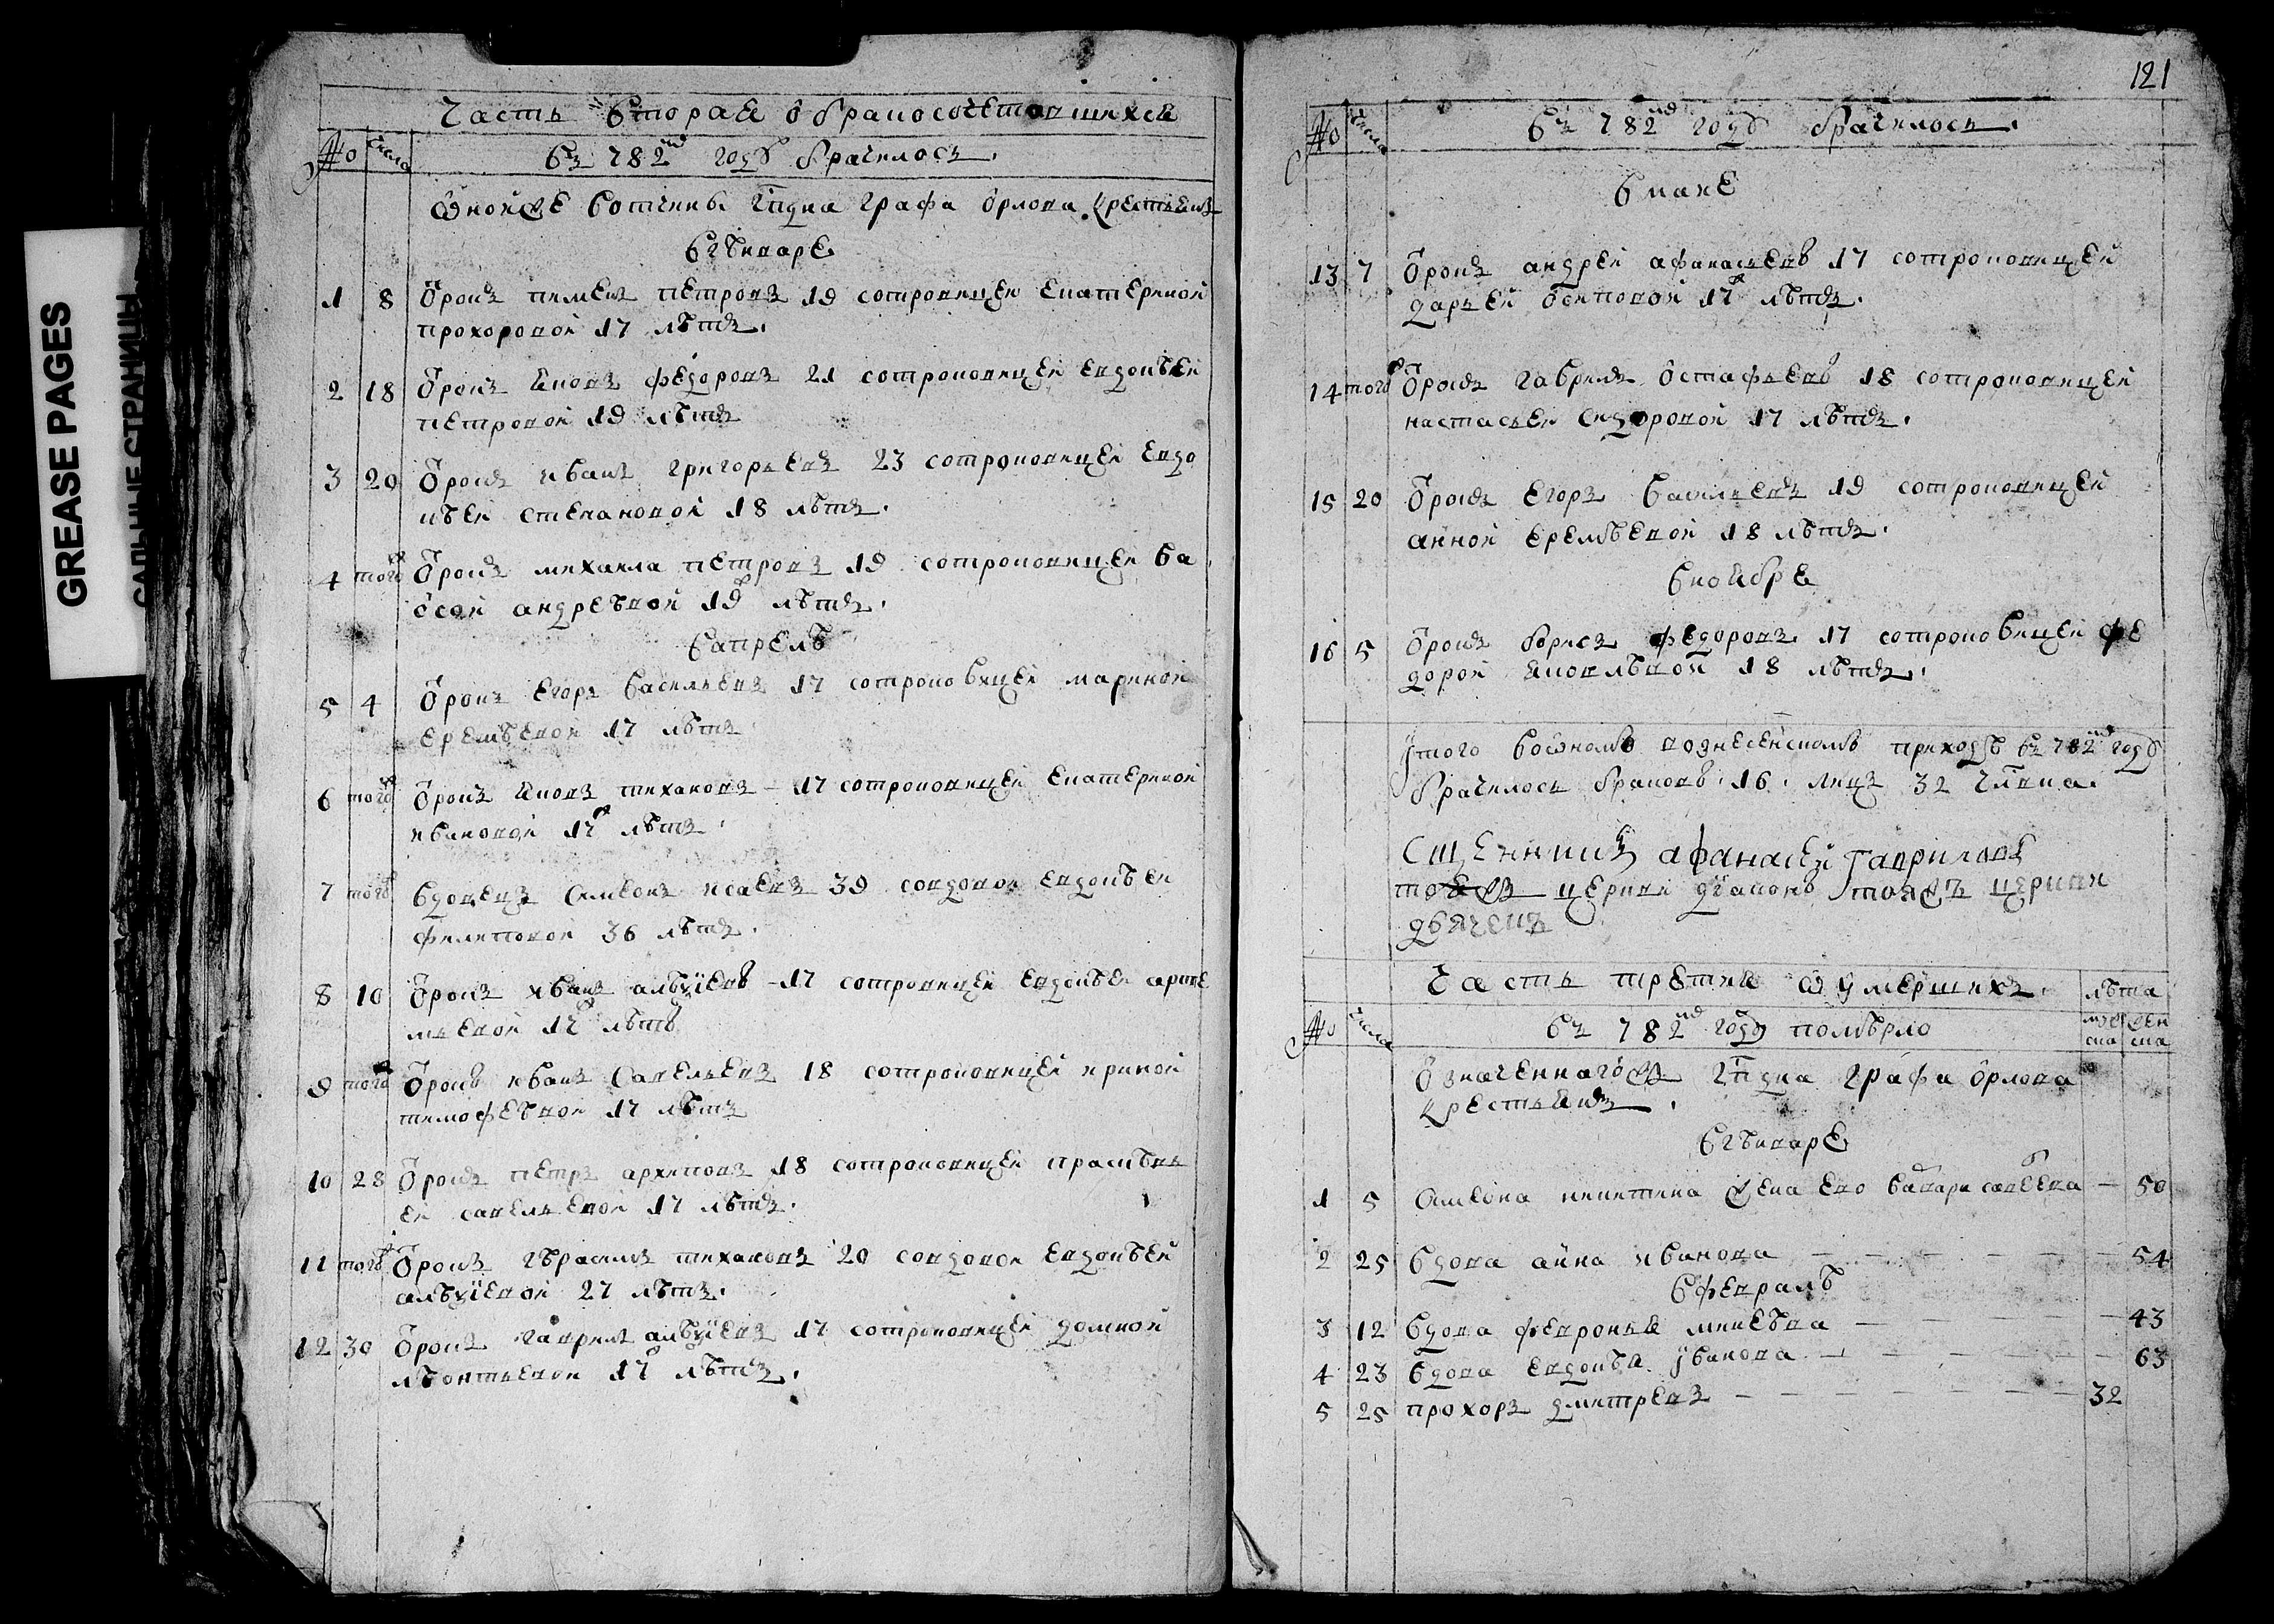 GREASE PAGES
САЛЬНЫЕ СТРАНИЦЫ
Часть вторая о бракосочетавшихся
№ числа въ 782м году брачилось.
Одной же вотчины гпдна графа орлова крестьянъ
в гѣнваре
1 8 Отрокъ пименъ петровъ 19 сотроковицей екатериной
прохоровой 17 лѣтъ.
2 18 Отрокъ яковъ федоровъ 21 сотроковицей евдокѣей
петровой 19 лѣтъ
3 20 Отрокъ иванъ григорьевъ 23 сотроковицей евдо
кѣей степановой 18 лѣтъ.
4 тогож Отрокъ михаила петровъ 19 сотроковицей ва
осой андрѣевой 19 лѣтъ.
в апрелѣ
5 4 Отрокъ егоръ васильевъ 17 сотроковицей мариной
еремѣевой 17 лѣтъ
6 тогож Отрокъ яковъ тихановъ – 17 сотроковицей екатериной
ивановой 17 лѣтъ.
7 тогож вдовецъ симеонъ исаевъ 39 совдовой евдокѣей
филиповой 36 лѣтъ.
8 10 Отрокъ иванъ алѣѯіевъ – 17 сотроковицей евдокѣей арте
мьевой 17 лѣтъ
9 тогож Отрокъ иванъ савельевъ 18 сотроковицей ириной
тимофѣевой 17 лѣтъ
10 28 Отрокъ петръ архиповъ 18 сотроковицей прасковь
ей савельевой 17 лѣтъ.
11 тогож Отрокъ гѣрасимъ тихановъ 20 совдовой евдокѣей
алѣѯіевой 27 лѣтъ.
12 30 Отрокъ гаврилъ алѣѯіевъ 17 сотроковицей домной
лѣонтьевой 17 лѣтъ.
121
№ числа въ 782м году брачилось.
в маие
13 7 Отрокъ андрей афанасьевъ 17 сотроковицей
дарьей осиповой 17 лѣтъ.
14 тогож Отрокъ гаврилъ остафьевъ 18 сотроковицей
настасьей сидоровой 17 лѣтъ.
15 20 Отрокъ егоръ васильевъ 19 сотроковицей
анной еремѣевой 18 лѣтъ.
в ноябре
16 5 Отрокъ борисъ федоровъ 17 сотроковицей фе
дорой яковлѣвой 18 лѣтъ.
Итого во ономъ вознесенскомъ приходѣ въ 782м году
брачилось браковъ 16. лицъ 32 члвка.
Сщенникъ афанасей гавриловъ
тоежъ церкви дїаконъ тояжъ церкви
дьячекъ
Часть третия о умершихъ. лѣта
№ числа въ 782м году помѣрло муска женска
Означеннагожъ гпдна графа орлова
крестьянъ.
в гѣнваре
1 5 симеона никитина жена ево варвара савеева – 50
2 25 вдова анна иванова – – – – – 54
в февралѣ
3 12 вдова феврония микеѣва – – – – – 43
4 23 вдова евдокѣа иванова – – – – – 63
5 25 прохоръ дмитревъ – – – – – – – 32